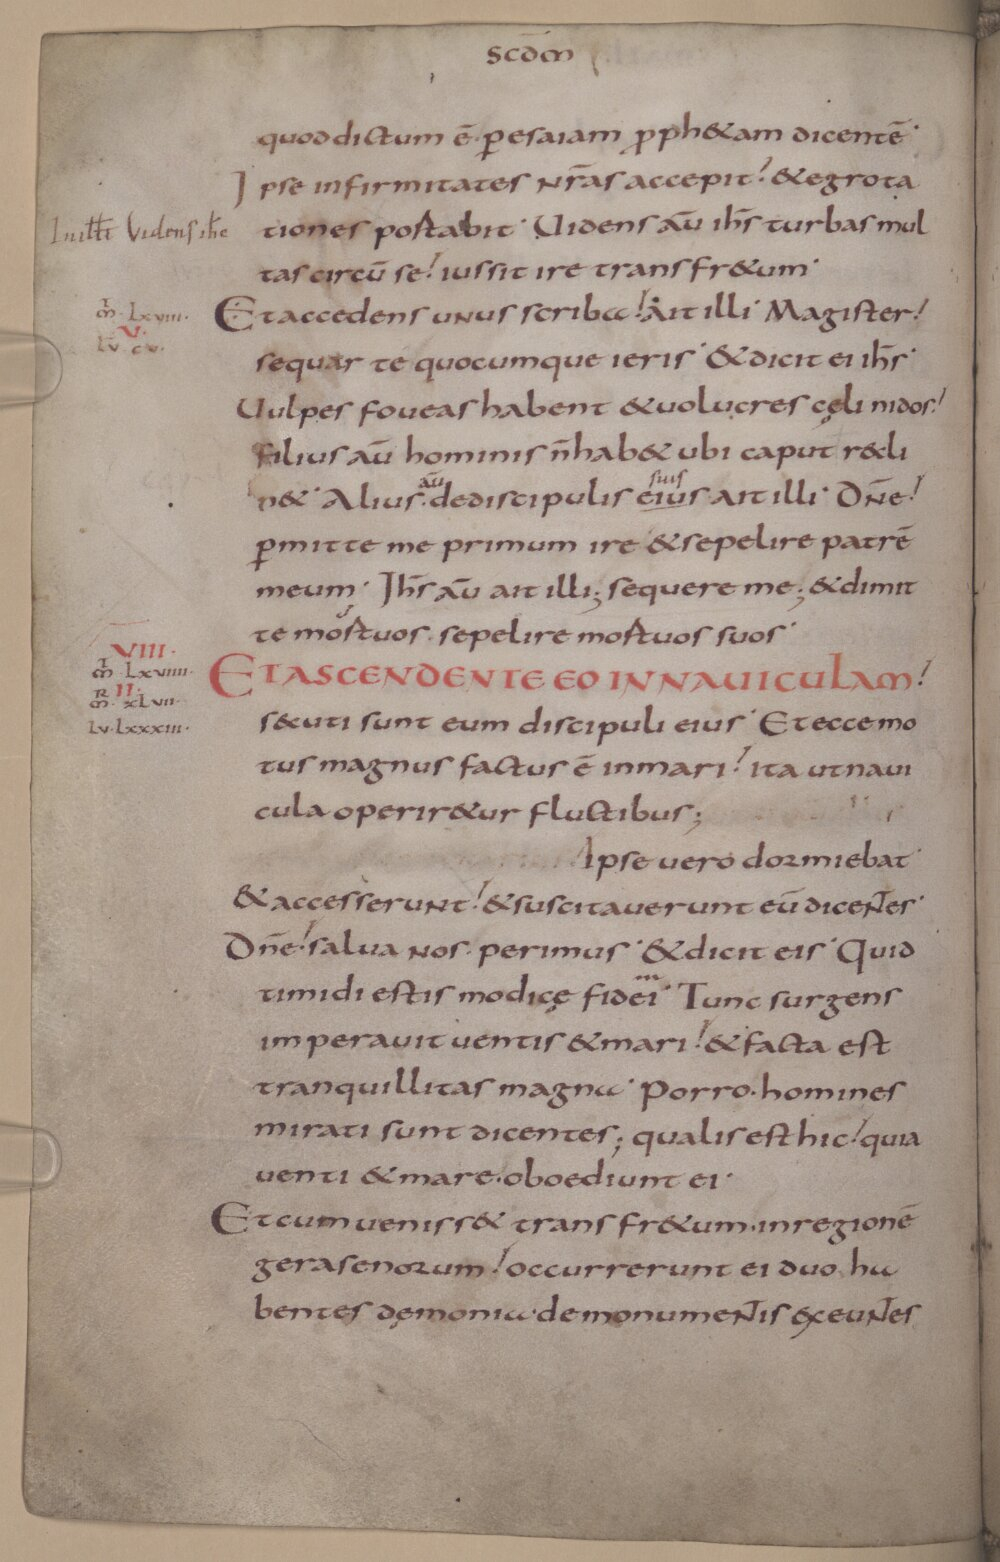 scd̄m
quod dictum ē· ꝑ esaiam ꝓph&am dicentē·
Ipse infirmitates nr̄as accepit! & egrota
In ill t̄ Vidensih̄c
tiones portabit· Uidens aū ih̄s turbas mul
tas circū se! iussit ire trans fr&um·
m̄t· Lxviii·
V·
Lv̄ cv·
Et accedens unus scriba! Ait illi· Magister!
sequar te quocumque ieris· & dicit ei ih̄s·
Uulpes foveas habent & volucres cęli nidos!
filius aū hominis n̄ hab& ubi caput recli
n&· Alius aū· de discipulis eius suis ait illi· Dn̄e!
ꝑmitte me primum ire & sepelire patrē
meum· Ih̄s aū ait illi; sequere me; & dimit
te mortuos· sepelire mortuos suos·
VIII·
m̄t· Lxviiii·
II·
m̄r· xLvii·
Lv· Lxxxiii·
ET ASCENDENTE EO IN NAUICULAM!
secuti sunt eum discipuli eius· Et ecce mo
tus magnus factus ē in mari! ita ut naui
cula operir&ur fluctibus;
Ipse vero dormiebat·
& accesserunt! & suscitauerunt eū dicentes·
Dn̄e! salua nos· perimus· & dicit eis· Quid
timidi estis modicę fidei· Tunc surgens
imperauit uentis & mari! & facta est
tranquillitas magna· Porro· homines
mirati sunt dicentes; qualis est hic! quia
uenti & mare· oboediunt ei·
Et cum veniss& trans fr&um· in regionē
gerasenorum! occurrerunt ei duo ha
bentes demonia· de monumentis exeuntes